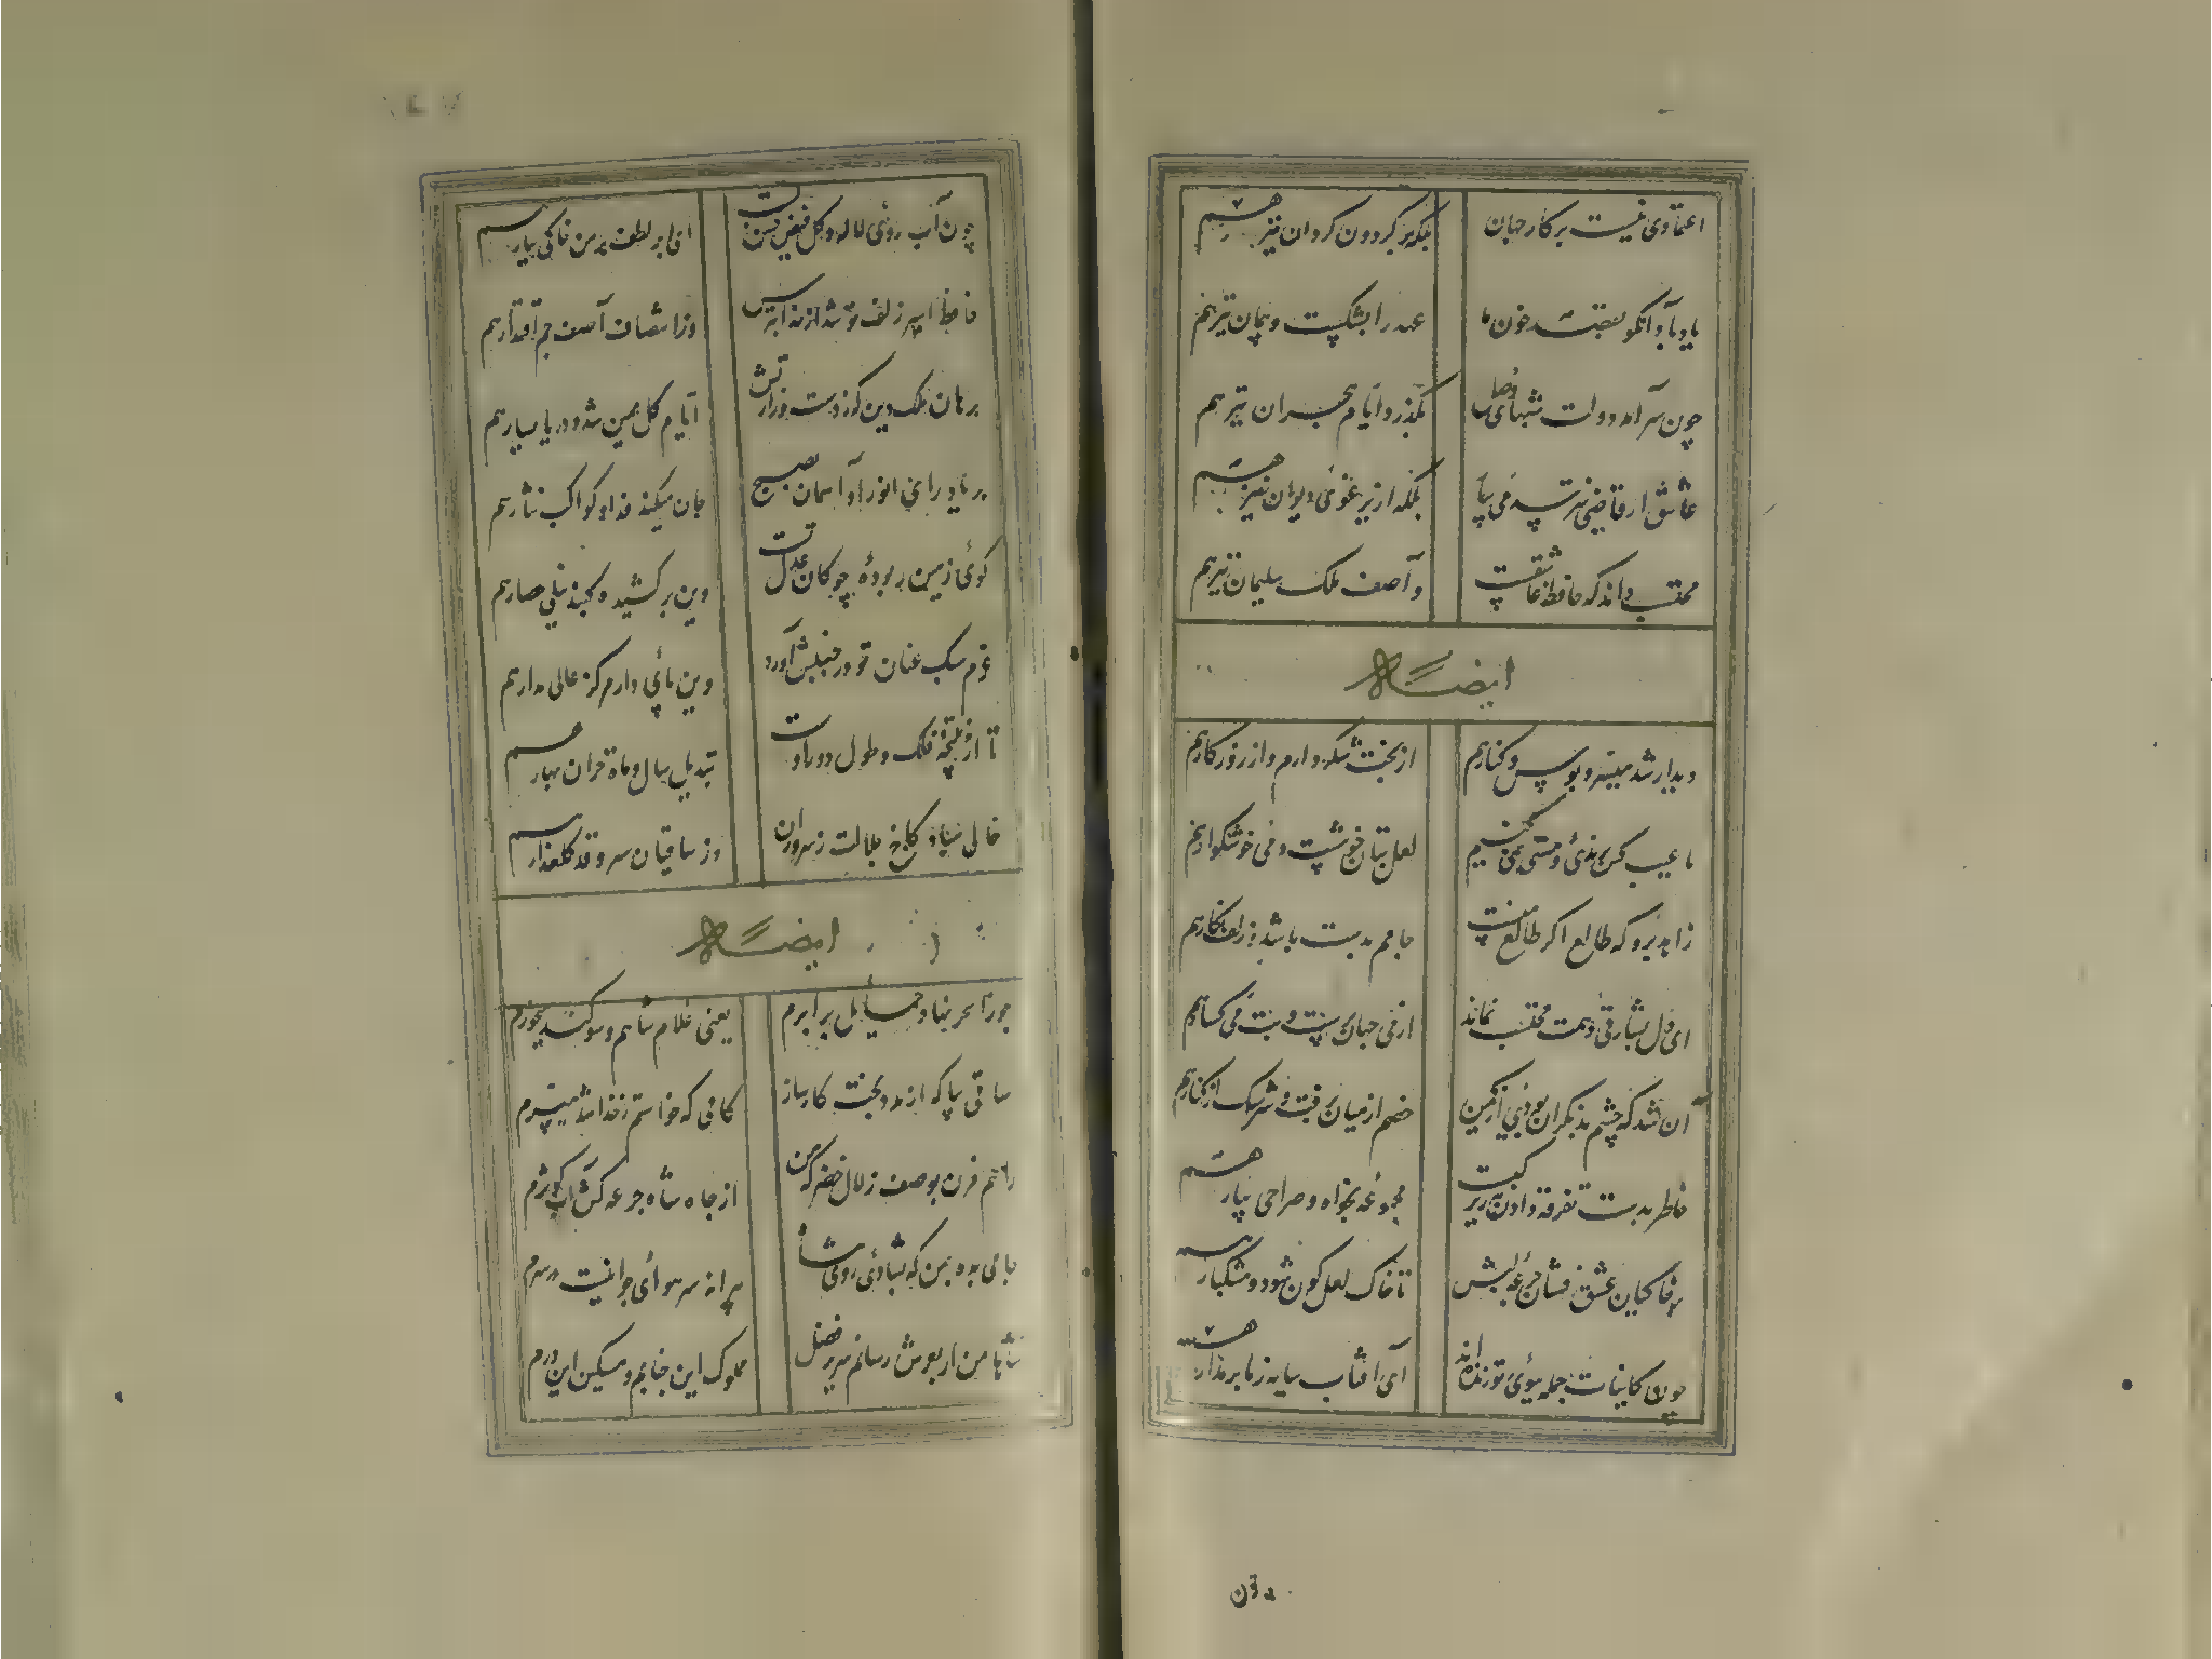 اعتمادی نیست بر کار جهان
بلکه بر گردون گردان نیز هم
یاد باد آنکو بقصد خون ما
عهد را بشکست و پیمان نیز هم
چون سر آمد دولت شبهای وصل
بگذرد ایام هجران نیز هم
عاشق از قاضی نترسد می بیار
بلکه از یرغوی دیوان نیز هم
محتسب داند که حافظ عاشقست
و آصف ملک سلیمان نیز هم
ایضاً
دیدار شد میسر و بوس و کنار هم
از بخت شکر دارم و از روزگار هم
ما عیب کس برندی و مستی نمی کنیم
لعل بتان خوشست و می خوشگوار هم
زاهد برو که طالع اگر طالع منست
جامم بدست باشد و زلف نگار هم
ای دل بشارتی دهمت محتسب نماند
از می جهان پرست و بت می گسار هم
آن شد که چشم بد نگران بودی از کمین
خصم از میان برفت و سرشک از کنار هم
خاطر بدست تفرقه دادن نه زیرکیست
مجموعه بخواه و صراحی بیار هم
بر خاکیان عشق فشان جرعه لبش
تا خاک لعل گون شود و مشکبار هم
چون کاینات جمله ببوی تو زنده اند
ای آفتاب سایه ز ما بر مدار هم
چون
چون آب روی لاله و گل فیض حسن تست
ای ابر لطف بر من خاکی ببار هم
حافظ اسیر زلف تو شد از خدا بترس
وز انتصاف آصف جم اقتدار هم
برهان ملک و دین که ز دست وزارتش
ایام کان یمین شد و دریا یسار هم
بر یاد رای انور او آسمان بصبح
جان میکند فدا و کواکب نثار هم
گوی زمین ربوده چوگان عدل تست
وین برکشیده گنبد نیلی حصار هم
عزم سبک عنان تو در جنبش آورد
وین پایدار مرکز عالی مدار هم
تا از نتیجه فلک و طور دور اوست
تبدیل سال و ماه و خزان و بهار هم
خالی مباد کاخ جلالت ز سروران
وز ساقیان سرو قد گلعذار هم
ایضاً
جوزا سحر نهاد حمایل برابرم
یعنی غلام شاهم و سوگند میخورم
ساقی بیا که از مدد بخت کارساز
کامی که خواستم ز خدا شد میسرم
راهم مزن بوصف زلال خضر که من
از جام شاه جرعه کش آب کوثرم
جامی بده بمن که بشادی روی شاه
پیرانه سر هوای جوانیست در سرم
شاها من ار بعرش رسانم سریر فضل
مملوک این جنابم و مسکین این درم